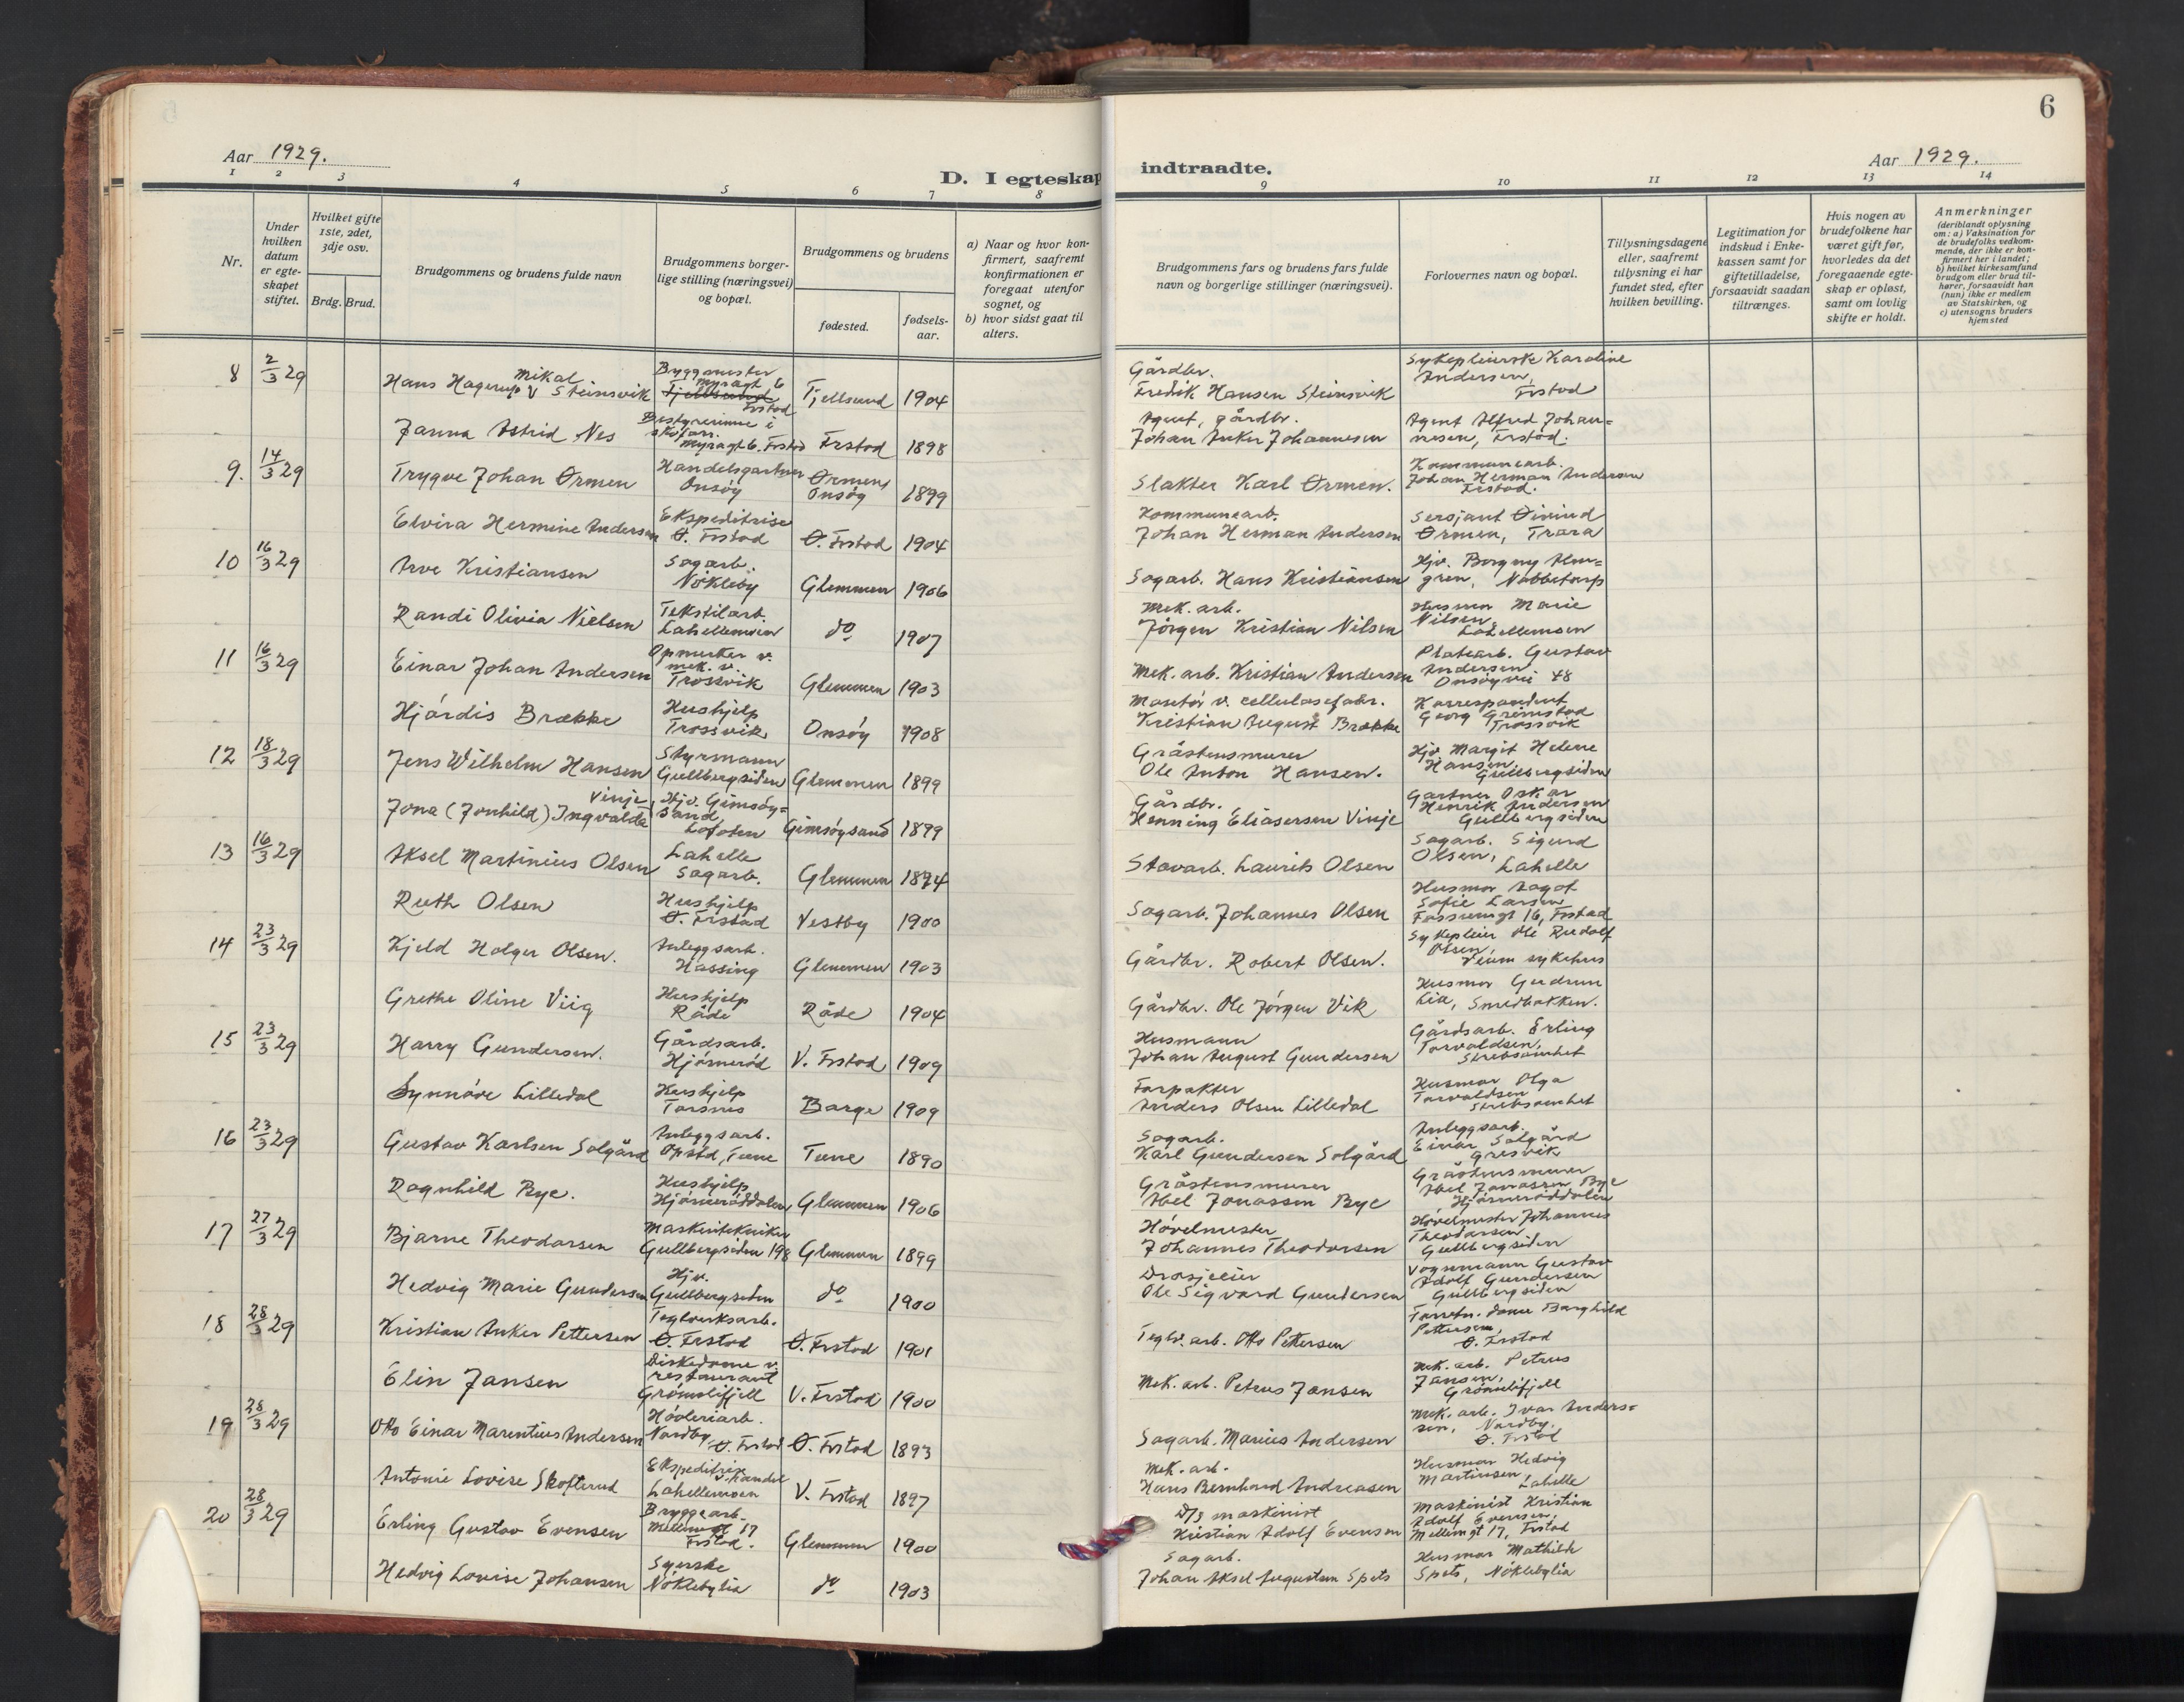 6
Aar 1929.
D. I egteskap indtraadte.
Aar 1929.
1 2 3 4 5 6 7 8 9 10 11 12 13 14
Nr.
Under hvilken datum er egteskapet stiftet.
Hvilket gifte 1ste, 2det, 3dje osv.
Brdg. Brud.
Brudgommens og brudens fulde navn
Brudgommens borgerlige stilling (næringsvei) og bopæl.
Brudgommens og brudens
fødested.
fødselsaar.
a) Naar og hvor konfirmert, saafremt konfirmationen er foregaat utenfor sognet, og
b) hvor sidst gaat til alters.
Brudgommens fars og brudens fars fulde navn og borgerlige stillinger (næringsvei).
Forlovernes navn og bopæl.
Tillysningsdagene eller, saafremt tillysning ei har fundet sted, efter hvilken bevilling.
Legitimation for indskud i Enkekassen samt for giftetilladelse, forsaavidt saadan tiltrænges.
Hvis nogen av brudefolkene har været gift før, hvorledes da det foregaaende egteskap er opløst, samt om lovlig skifte er holdt.
Anmerkninger (deriblandt oplysning om: a) Vaksination for de brudefolks vedkommende, der ikke er konfirmert her i landet; b) hvilket kirkesamfund brudgom eller brud tilhører, forsaavidt han (hun) ikke er medlem av Statskirken, og c) utensogns bruders hjemsted
8 2/3 29 Hans Hagerup Mikal V Steinsvik Byggmester Myragt 6 Fjellsund Frstad Tjellsund 1904 Gårdbr. Fredik Hansen Steinsvik Sykepleierske Karoline Andersen, Frstad
Janna Astrid Nes Bestyrerinne i skoforr. Myragt 6. Frstad Frstad 1898 Agent, gårdbr. Johan Anker Johannesen Agent Alfred Johannesen, Frstad.
9. 14/3 29 Trygve Johan Ørmen Handelsgartner Onsøy Ørmen, Onsøy 1899 Slakter Karl Ørmen. Kommunearb. Johan Herman Andersen Frstad.
Elvira Hermine Andersen Ekspeditrise Ø. Frstad Ø. Frstad 1904 Kommunearb. Johan Herman Andersen Sersjant Øivind Ørmen, Trara
10 16/3 29 Arve Kristiansen Sagarb. Nøkleby Glemmen 1906 Sagarb. Hans Kristiansen Hjv. Borgny Almgren, Nabbetorp
Randi Olivia Nielsen Tekstilarb. Lahellemoen do 1907 Mek. arb. Jørgen Kristian Nilsen Husmor Marie Nilsen, Lahellemoen
11 16/3 29 Einar Johan Andersen Opmerker v. mek. v. Trosvik Glemmen 1903 Mek. arb. Kristian Andersen Platearb. Gustav Andersen Onsøyvei 48
Hjørdis Brække Hushjelp Trossvik Onsøy 1908 Montør v. cellulosefabr. Kristian August Brække Korrespondent Georg Grimstad Trossvik
12 18/3 29 Jens Wilhelm Hansen Styrmann Gullbergsiden Glemmen 1899 Gråstensmurer Ole Anton Hansen. Hjv. Margit Helene Hansen, Gullbergsiden
Jona (Jonhild) Ingvalda Vinje Hjv. Gimsøysand, Lofoten Gimsøysand 1899 Gårdbr. Henning Eliasersen Vinje Gartner Oskar Henrik Andersen Gullbergsiden
13 16/3 29 Aksel Martinius Olsen Lahelle Sagarb. Glemmen 1874 Stavarb. Laurits Olsen Sagarb. Sigurd Olsen, Lahelle
Ruth Olsen Hushjelp Ø. Frstad Vestby 1900 Sagarb. Johannes Olsen Husmor Aagot Sofie Larsen Fossumgt 16, Frstad
14 23/3 29 Kjeld Holger Olsen. Anleggsarb. Hassing Glemmen 1903 Gårdbr. Robert Olsen. Sykepleier Ole Rudolf Olsen, Veum sykehus
Grethe Oline Viig Hushjelp Råde Råde 1904 Gårdbr. Ole Jørgen Vik Husmor Gudrun Lia, Smedbakken.
15 23/3 29 Harry Gundersen. Gårdsarb. Hjørnerød V. Frstad 1909 Husmann Johan August Gundersen Gårdsarb. Erling Torvaldsen, Strebsomhet
Synnøve Lilledal Hushjelp Torsnes Borge 1909 Forpakter Anders Olsen Lilledal Husmor Olga Torvaldsen Strebsomhet
16 23/3 29 Gustav Karlsen Solgård Anleggsarb. Opstd, Tune Tune 1890 Sagarb. Karl Gundersen Solgård Anleggsarb. Einar Solgård Gresvik
Ragnhild Bye. Hushjelp Hjørnerøddalen Glemmen 1906 Gråstensmurer Abel Jonassen Bye Gråstensmurer Abel Jonassen Bye Hjørnerøddalen
17 27/3 29 Bjarne Theodorsen Maskintekniker Gullbergsiden 198 Glemmen 1899 Høvelmester Johannes Theodorsen Høvelmester Johannes Theodorsen Gullbergsiden
Hedvig Marie Gundersen Hjv. Gullbergsiden do 1900 Drosjeeier Ole Sigvard Gundersen Vognmann Gustav Adolf Gundersen Gullbergsiden
18 28/3 29 Kristian Anker Pettersen Teglverksarb. Ø. Frstad Ø. Frstad 1901 Teglv. arb. Otto Pettersen Forretn. dame Borghild Pettersen, Ø. Frstad
Elin Jansen Diskedame v. restaurant Grønnlifjell V. Frstad 1900 Mek. arb. Petrus Jansen Mek. arb. Petrus Jansen, Grønnlifjell
19 28/3 29 Otto Einar Marentius Andersen Høvleriarb. Nordby, Ø. Frstad Ø. Frstad 1893 Sagarb. Marius Andersen Mek. arb. Ivar Anderssen, Nordby. Ø. Frstad
Antonie Lovise Skofterud Ekspeditrise v. handel Lahellemoen V. Frstad 1897 Mek. arb. Hans Bernhard Andreasen Husmor Hedvig Martinsen, Lahelle
20 28/3 29 Erling Gustav Evensen Bryggearb. Mellemgt 17 Frstad. Glemmen 1900 D/s maskinist Kristian Adolf Evensen Maskinist Kristian Adolf Evensen, Mellemgt 17, Frstad
Hedvig Lovise Johansen Syerske Nøklebylia do 1903 Sagarb. Johan Aksel Augustsen Spets Husmor Mathilde Spets, Nøklebylia